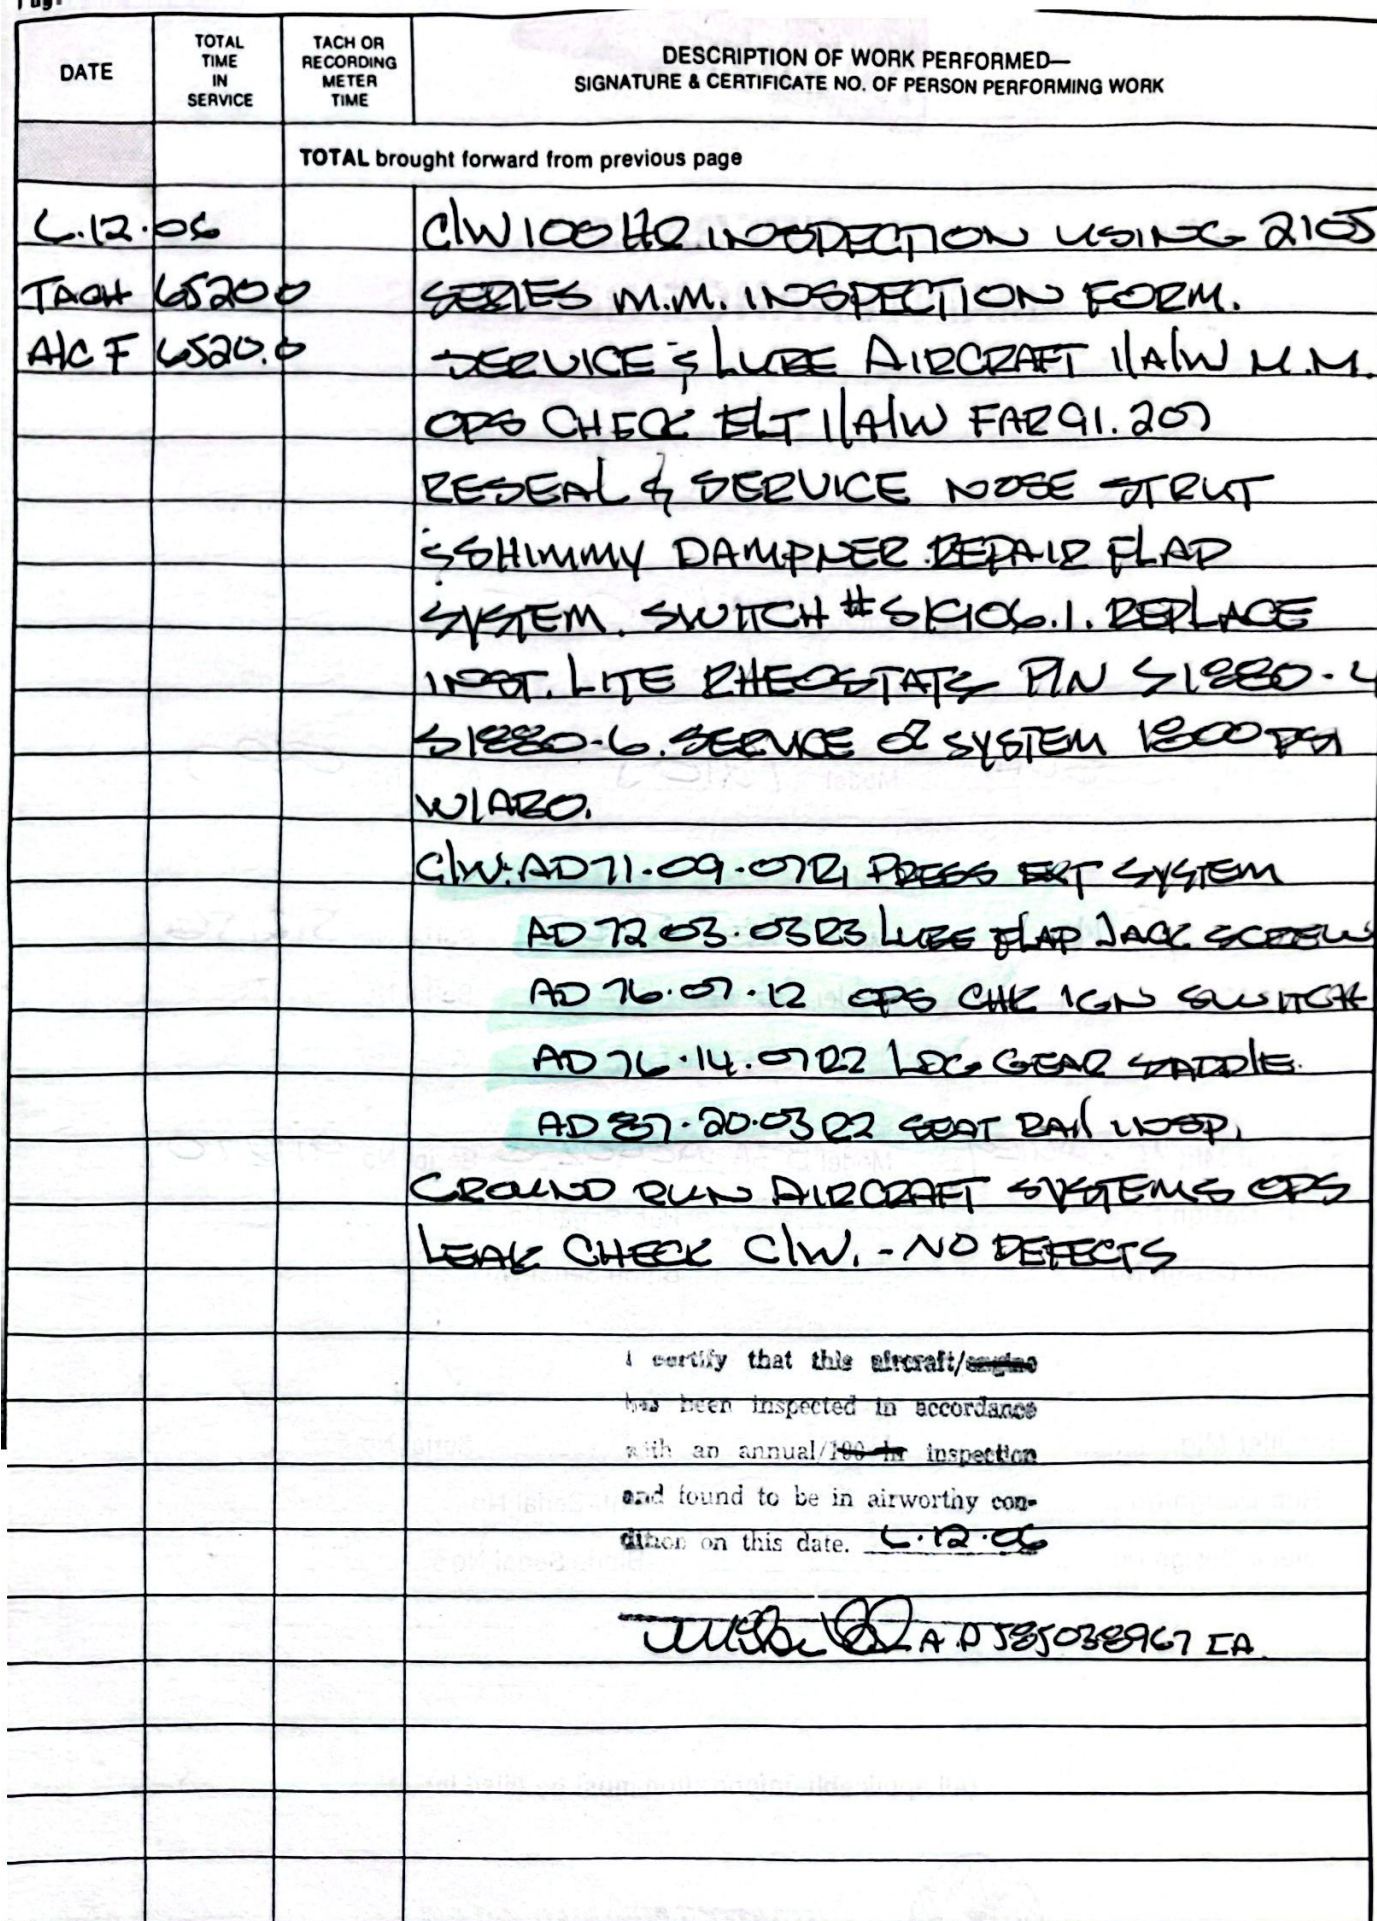 DATE
TOTAL TIME IN SERVICE
TACH OR RECORDING METER TIME
DESCRIPTION OF WORK PERFORMED—
SIGNATURE & CERTIFICATE NO. OF PERSON PERFORMING WORK
TOTAL brought forward from previous page
6.12.06 C/W 100 HR INSPECTION USING 210J
TACH 6520.0 SERIES M.M. INSPECTION FORM.
A/C F 6520.0 SERVICE & LUBE AIRCRAFT I/A/W M.M.
OPS CHECK ELT I/A/W FAR 91.207
RESEAL & SERVICE NOSE STRUT
& SHIMMY DAMPNER. REPAIR FLAP
SYSTEM. SWITCH # REPLACE
INST. LITE RHEOSTATS P/N S1880-4
S1880-6. SERVICE O2 SYSTEM 1800 PSI
W/ABO.
C/W: AD 71.09.07R1 PRESS EXT SYSTEM
AD 72.03.03R3 LUBE FLAP JACK SCREW
AD 76.07.12 OPS CHK IGN SWITCH
AD 76.14.07R2 LDG GEAR SADDLE.
AD 87.20.03R2 SEAT RAIL INSP.
GROUND RUN AIRCRAFT SYSTEMS OPS
LEAK CHECK C/W. - NO DEFECTS
I certify that this aircraft/engine
has been inspected in accordance
with an annual/100 hr inspection
and found to be in airworthy con-
dition on this date. 6.12.06
A P 585038967 IA